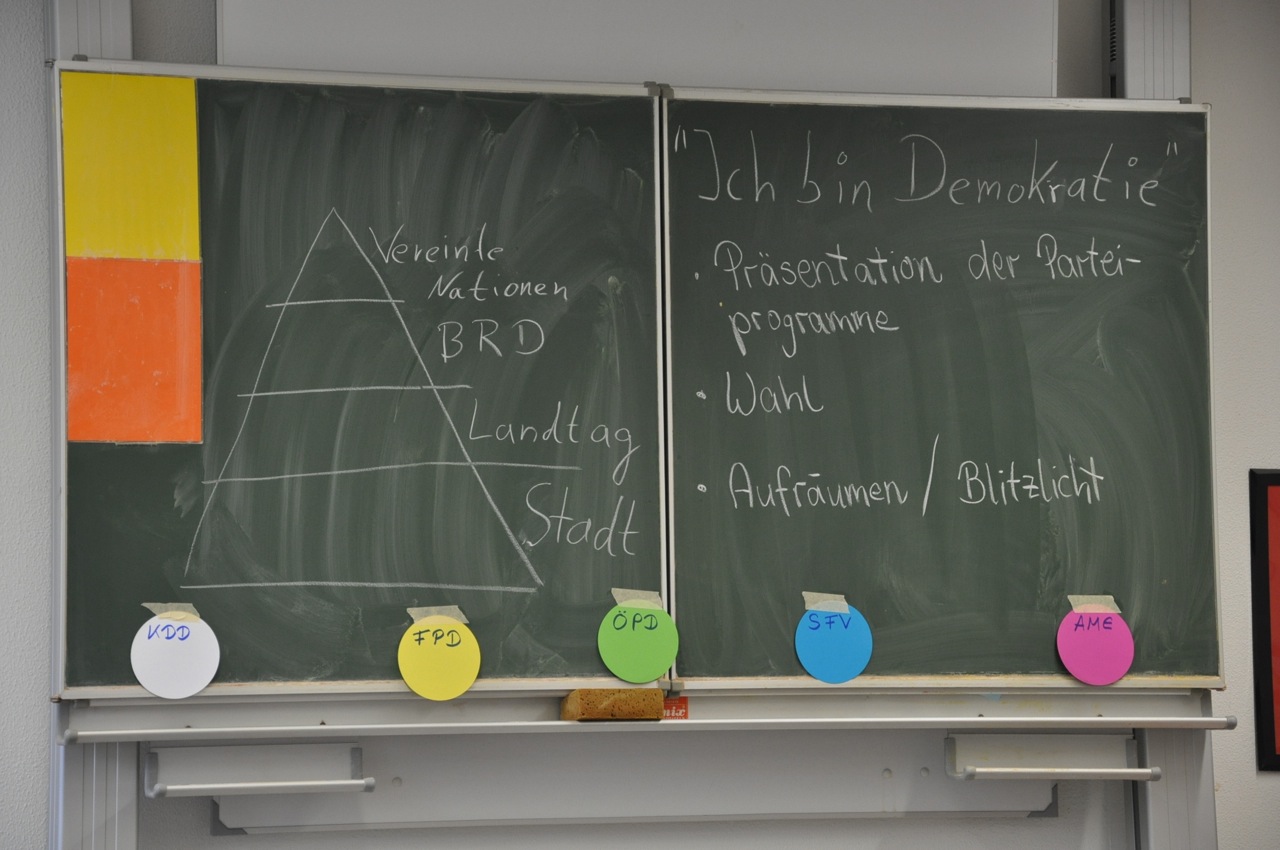 Vereinte
Nationen
BRD
Landtag
Stadt
"Ich bin Demokratie"
• Präsentation der Partei-
programme
• Wahl
• Aufräumen / Blitzlicht
KDD
FPD
ÖPD
SFV
AME